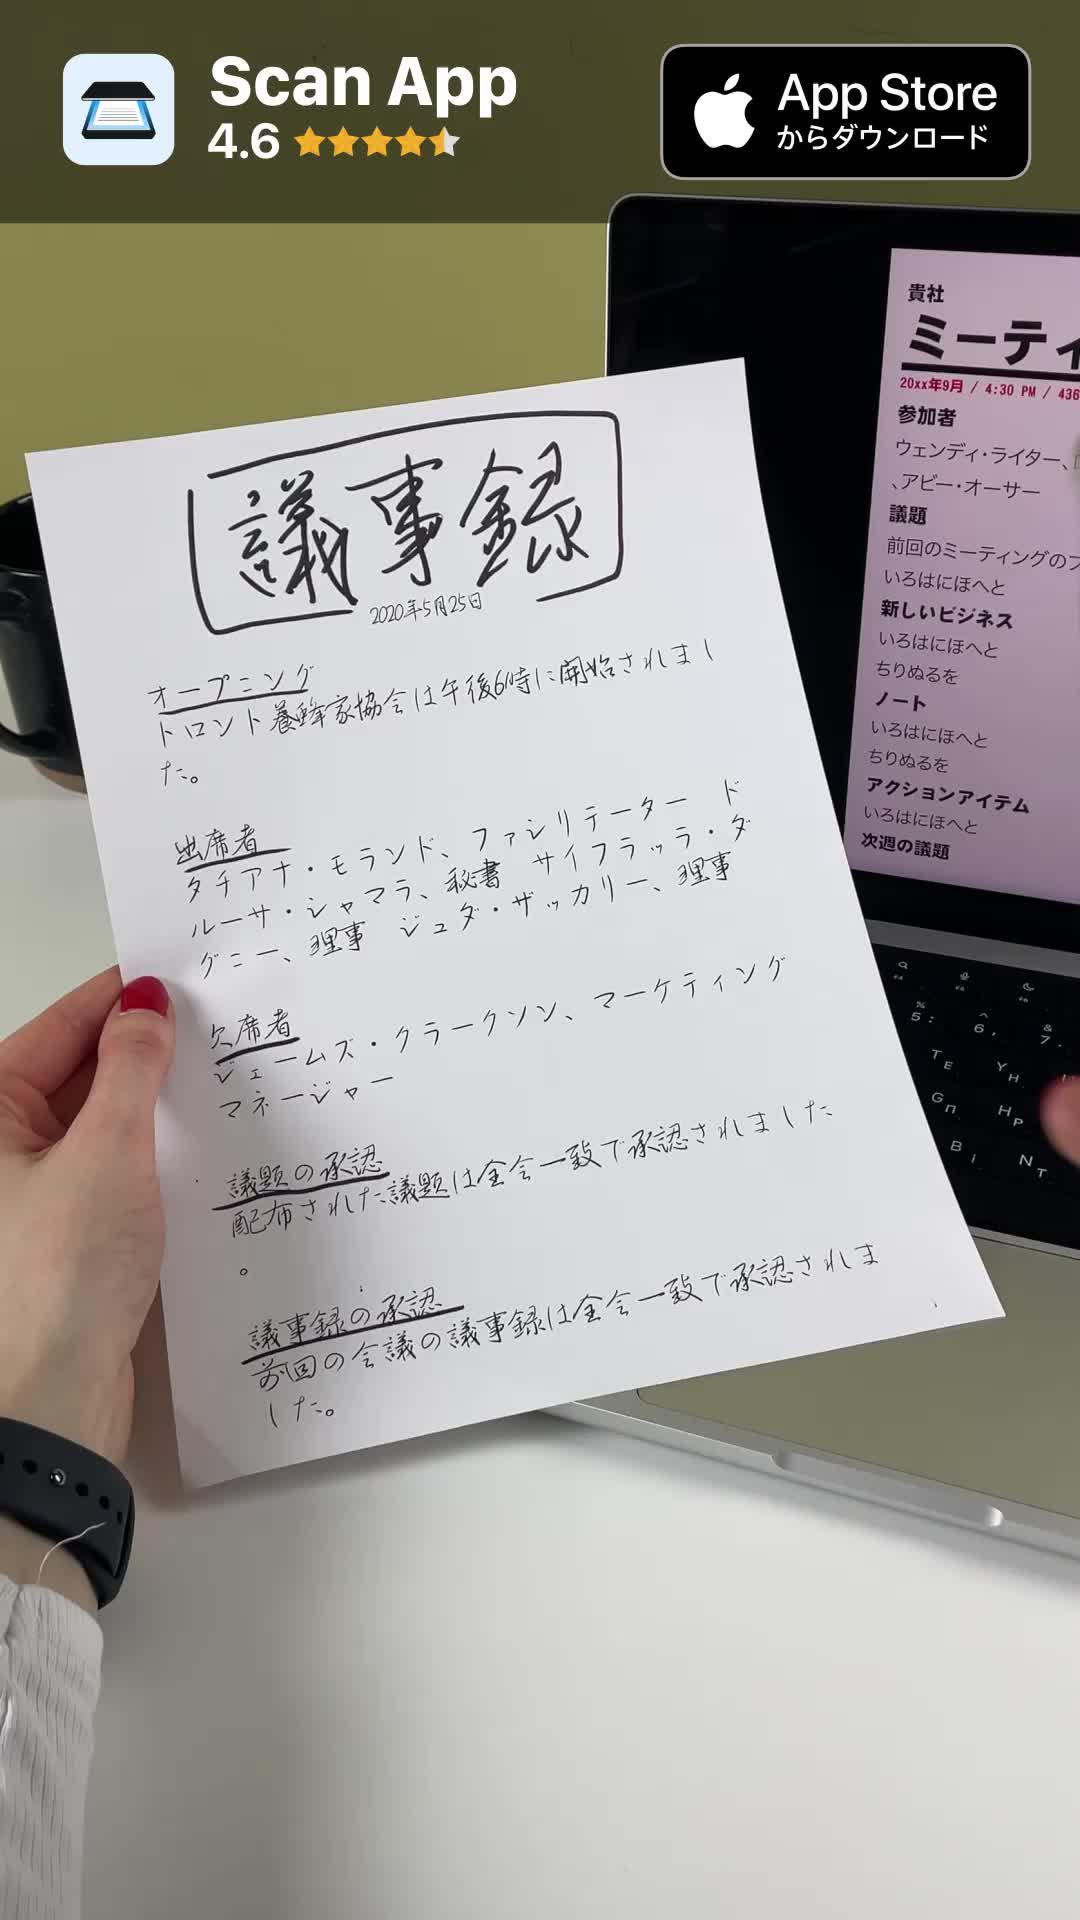 Scan App
4.6
App Store
からダウンロード
議事録
2020年5月25日
オープニング
トロント養蜂家協会は午後6時に開始されまし
た。
出席者
タチアナ・モランド、ファシリテーター ド
ルーサ・シャマラ、秘書 サイフラッラ・ダ
グニー、理事 ジュダ・ザッカリー、理事
欠席者
ジェームズ・クラークソン、マーケティング
マネージャー
議題の承認
配布された議題は全会一致で承認されました
。
議事録の承認
前回の会議の議事録は全会一致で承認されま
した。
貴社
ミーティ
20xx年9月 / 4:30 PM / 436
参加者
ウェンディ・ライター、
、アビー・オーサー
議題
前回のミーティングのフ
いろはにほへと
新しいビジネス
いろはにほへと
ちりぬるを
ノート
いろはにほへと
ちりぬるを
アクションアイテム
いろはにほへと
次週の議題